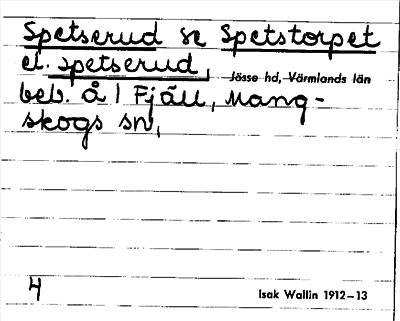 Spetserud se Spetstorpet
el. Spetserud,
Jösse hd, Värmlands län
beb. å 1 Fjäll, Mang-
skogs sn,
4
Isak Wallin 1912–13